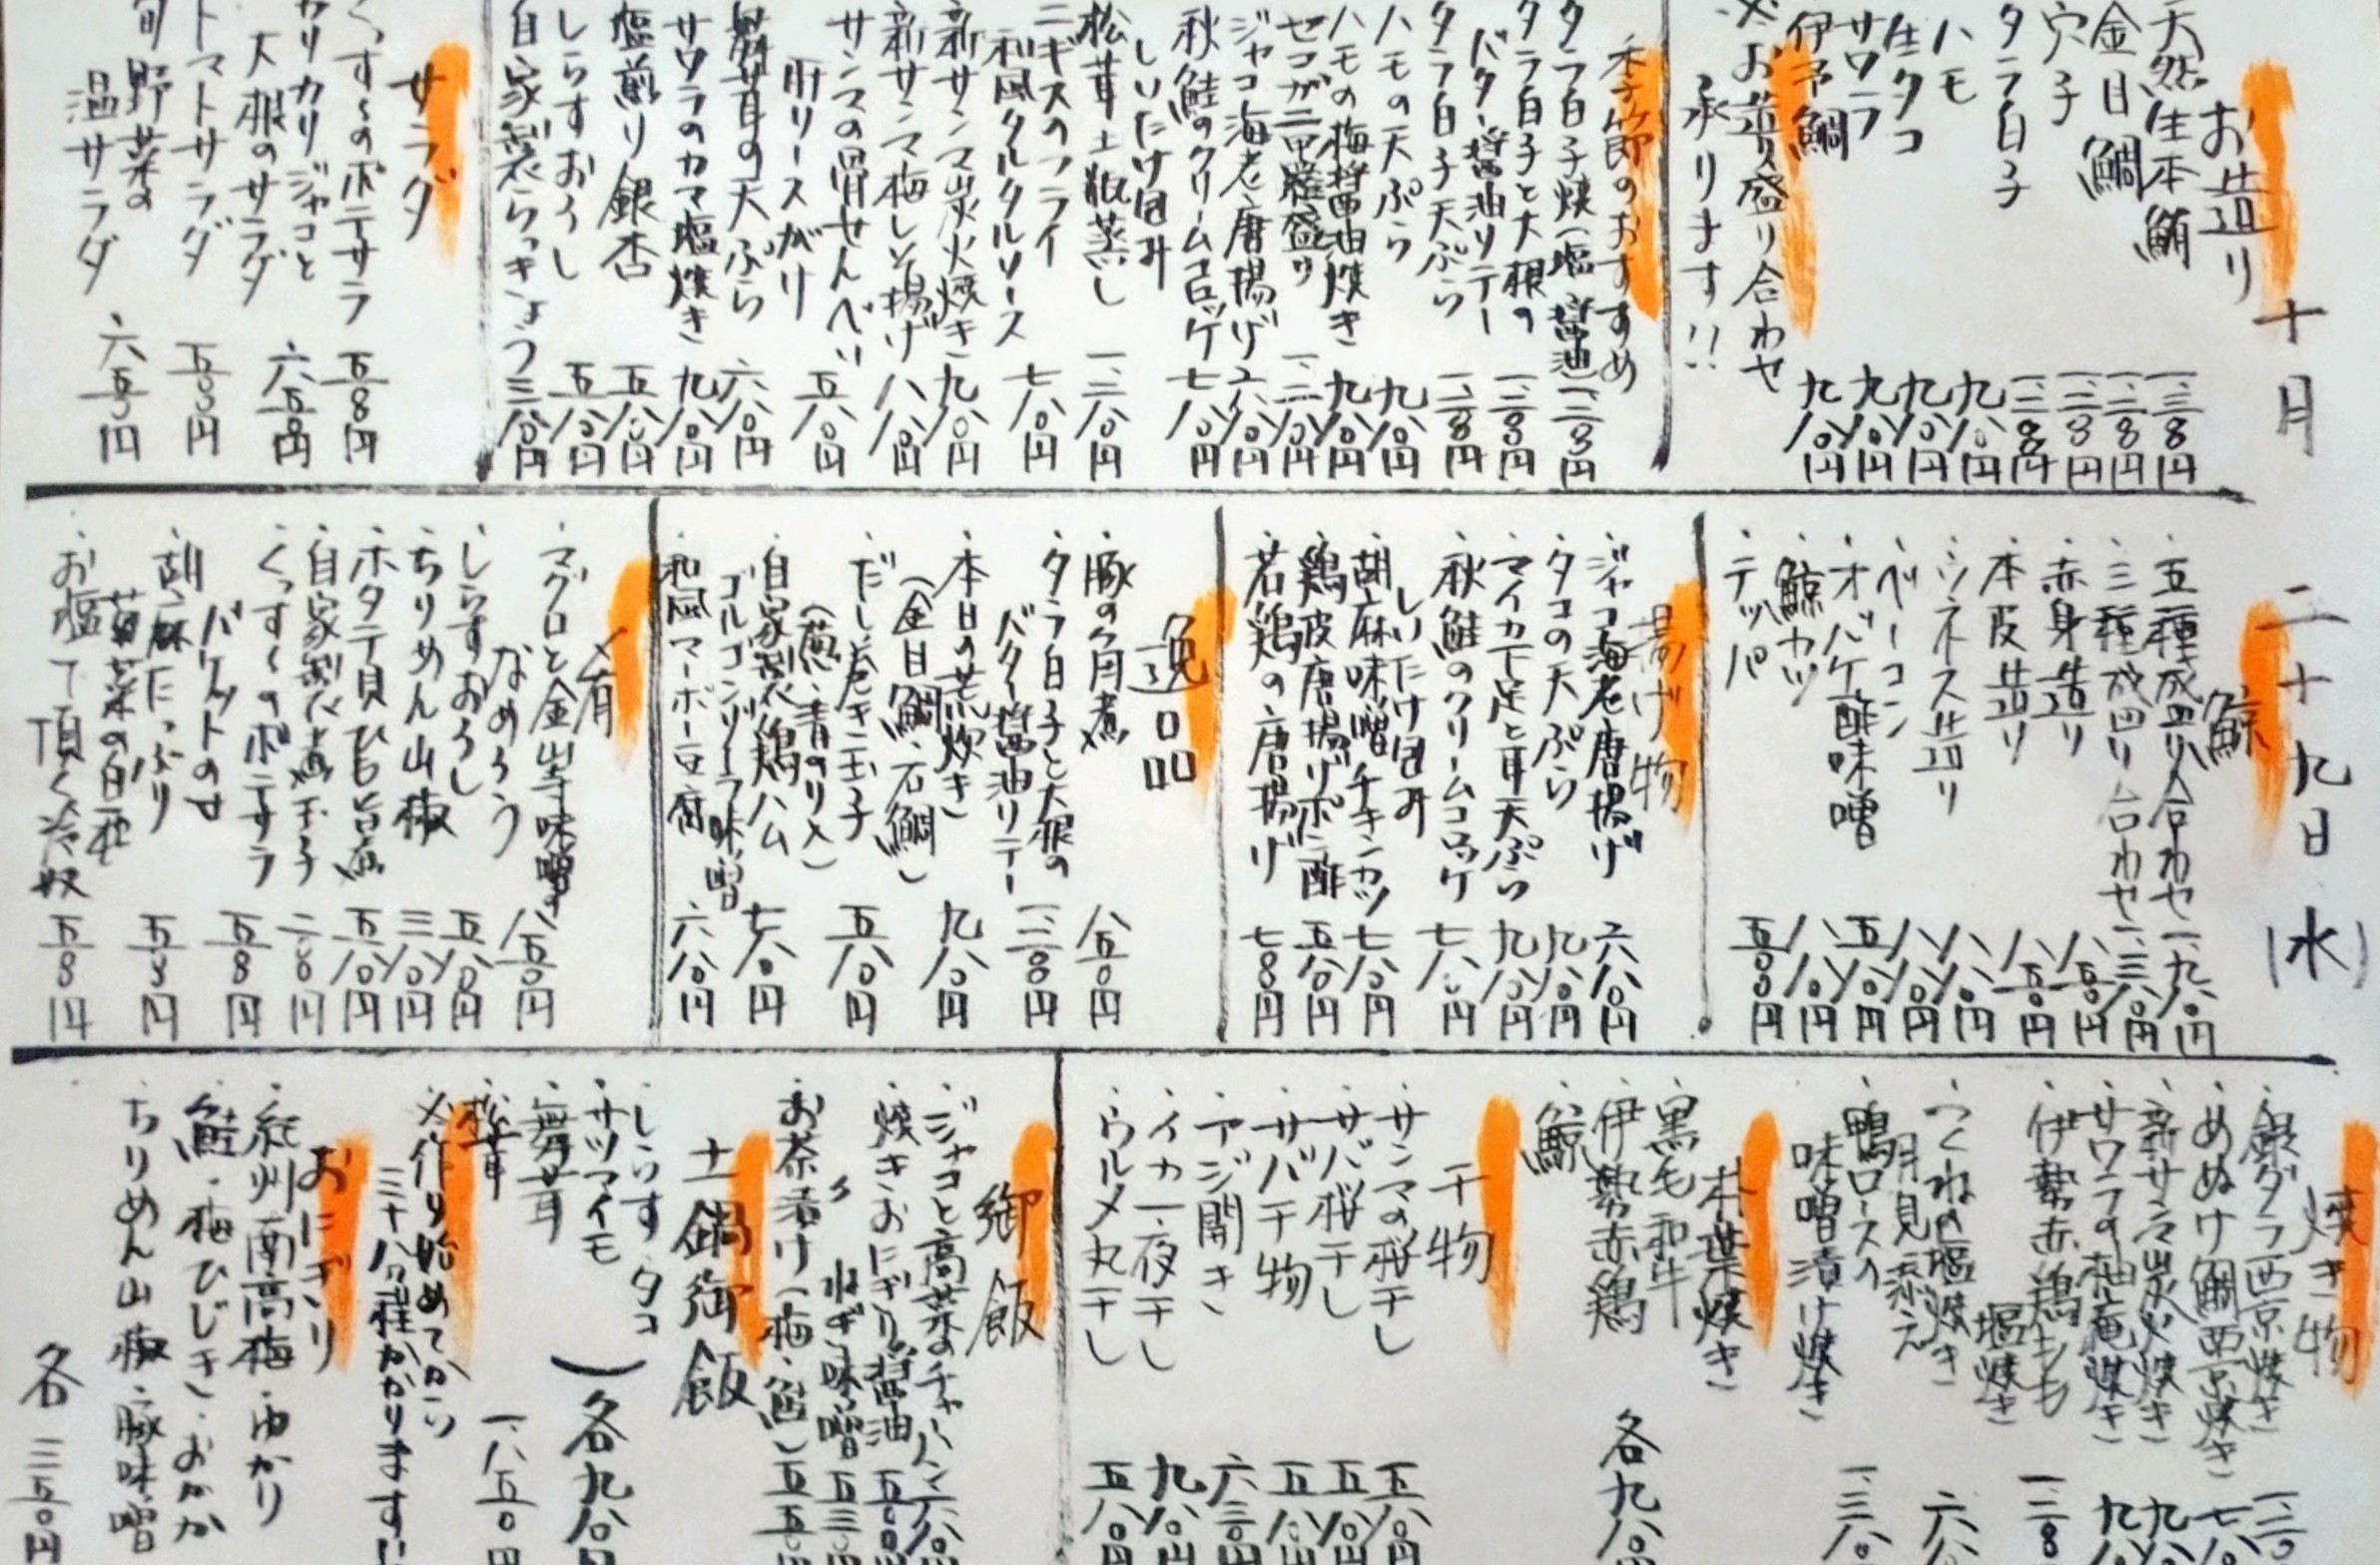 十月 二十九日(水)
お造り
天然生本鮪 一、三〇〇円
金目鯛 一、二〇〇円
穴子 一、二〇〇円
タラ白子 一、三〇〇円
ハモ 九八〇円
生タコ 九八〇円
サワラ 九八〇円
伊予鯛 九八〇円
※お造り盛り合わせ
承ります!!
季節のおすすめ
タラ白子焼(塩・醤油)
タラ白子と大根の
バター醤油ソテー
タラ白子天ぷら
ハモの天ぷら 九八〇円
ハモの梅醤油焼き 九八〇円
セコガニ甲羅盛り
ジャコ海老唐揚げ 六八〇円
秋鮭のクリームコロッケ 七八〇円
しいたけ包み
松茸土瓶蒸し
ニギスのフライ
和風タルタルソース 七八〇円
新サンマ炭火焼き 九八〇円
新サンマ梅しそ揚げ 八八〇円
サンマの骨せんべい
肝リースがけ 五八〇円
舞茸の天ぷら 六八〇円
サワラのカマ塩焼き 九八〇円
塩煎り銀杏 五八〇円
しらすおろし 五八〇円
自家製らっきょう 三八〇円
サラダ
くっすぃのポテサラ 五〇〇円
カリカリジャコと
大根のサラダ 六五〇円
トマトサラダ 五〇〇円
旬野菜の
温サラダ 六五〇円
鯨
・五種盛り合わせ 一、九八〇円
・三種盛り合わせ 一、三八〇円
・赤身造り 八五〇円
・本皮造り 八五〇円
・シネス造り 八八〇円
・ベーコン 八八〇円
・オバケ酢味噌 五八〇円
・鯨カツ 八八〇円
・テッパ 五〇〇円
揚げ物
・ジャコ海老唐揚げ 六八〇円
・タコの天ぷら 九八〇円
・マイカ下足と耳天ぷら 九八〇円
・秋鮭のクリームコロッケ
しいたけ包み 七八〇円
・胡麻味噌チキンカツ 七八〇円
・鶏皮唐揚げポン酢 五八〇円
・若鶏の唐揚げ 七〇〇円
逸品
・豚の角煮 八五〇円
・タラ白子と大根の
バター醤油ソテー 一、三〇〇円
・本日の荒炊き
(金目鯛・石鯛) 九八〇円
・だし巻き玉子
(葱・青のり〆) 五八〇円
・自家製鶏ハム
ゴルゴンゾーラ味噌 七八〇円
・和風マーボー豆腐 六八〇円
〆肴
・マグロと金山寺味噌
なめろう 八五〇円
・しらすおろし 五八〇円
・ちりめん山椒 三八〇円
・ホタテ貝ひも旨煮 五八〇円
・自家製煮玉子 二〇〇円
・くっすぃのポテサラ
バケットのせ 五〇〇円
・胡麻たっぷり
菊菜の白和 五〇〇円
・お塩で頂く冷奴 五〇〇円
焼き物
・銀ダラ西京焼き
・めぬけ鯛西京焼き
・新サンマ炭火焼き
・サワラの柚庵焼き
・伊勢赤鶏もも
塩焼き
・つくねの塩焼き
月見添え
・鴨ロースの
味噌漬け焼き
朴葉焼き
・黒毛和牛
・伊勢赤鶏
・鯨
各九八〇円
干物
・サンマの桜干し 五八〇円
・サバ桜干し 五八〇円
・サバ干物 五八〇円
・アジ開き 六三〇円
・イカ一夜干し 九八〇円
・ウルメ丸干し 五八〇円
御飯
・ジャコと高菜のチャーハン 六八〇円
・焼きおにぎり 醤油 五〇〇円
〃 ねぎ味噌 五三〇円
・お茶漬け(梅・鮭) 五五〇円
土鍋御飯
・しらす・タコ
・サツマイモ
・舞茸
各九八〇円
・松茸 一、八五〇円
※作り始めてから
三十八分程かかります!!
おにぎり
・紀州南高梅・ゆかり
・鮭・梅ひじき・おかか
・ちりめん山椒・豚味噌
各三五〇円